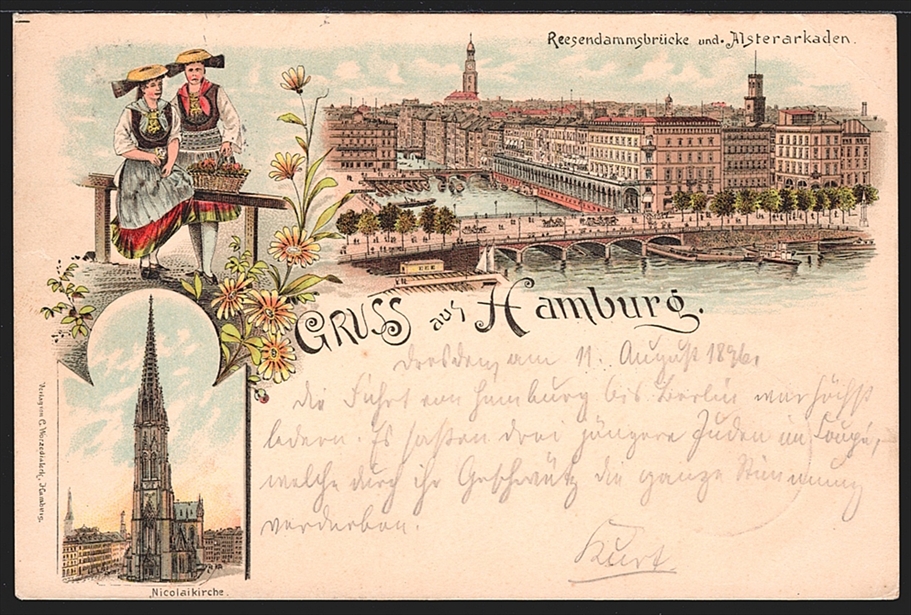 Reesendammsbrücke und Alsterarkaden.
GRUSS aus Hamburg.
Dresden, am 11. August 1896.
Die Fahrt von Hamburg bis Berlin war höchst
ledern. Es saßen drei jüngere Juden im Coupé,
welche durch ihr Geschwätz die ganze Stimmung
verdorben.
Kurt
Nicolaikirche.
Verlag von C. Hamburg.